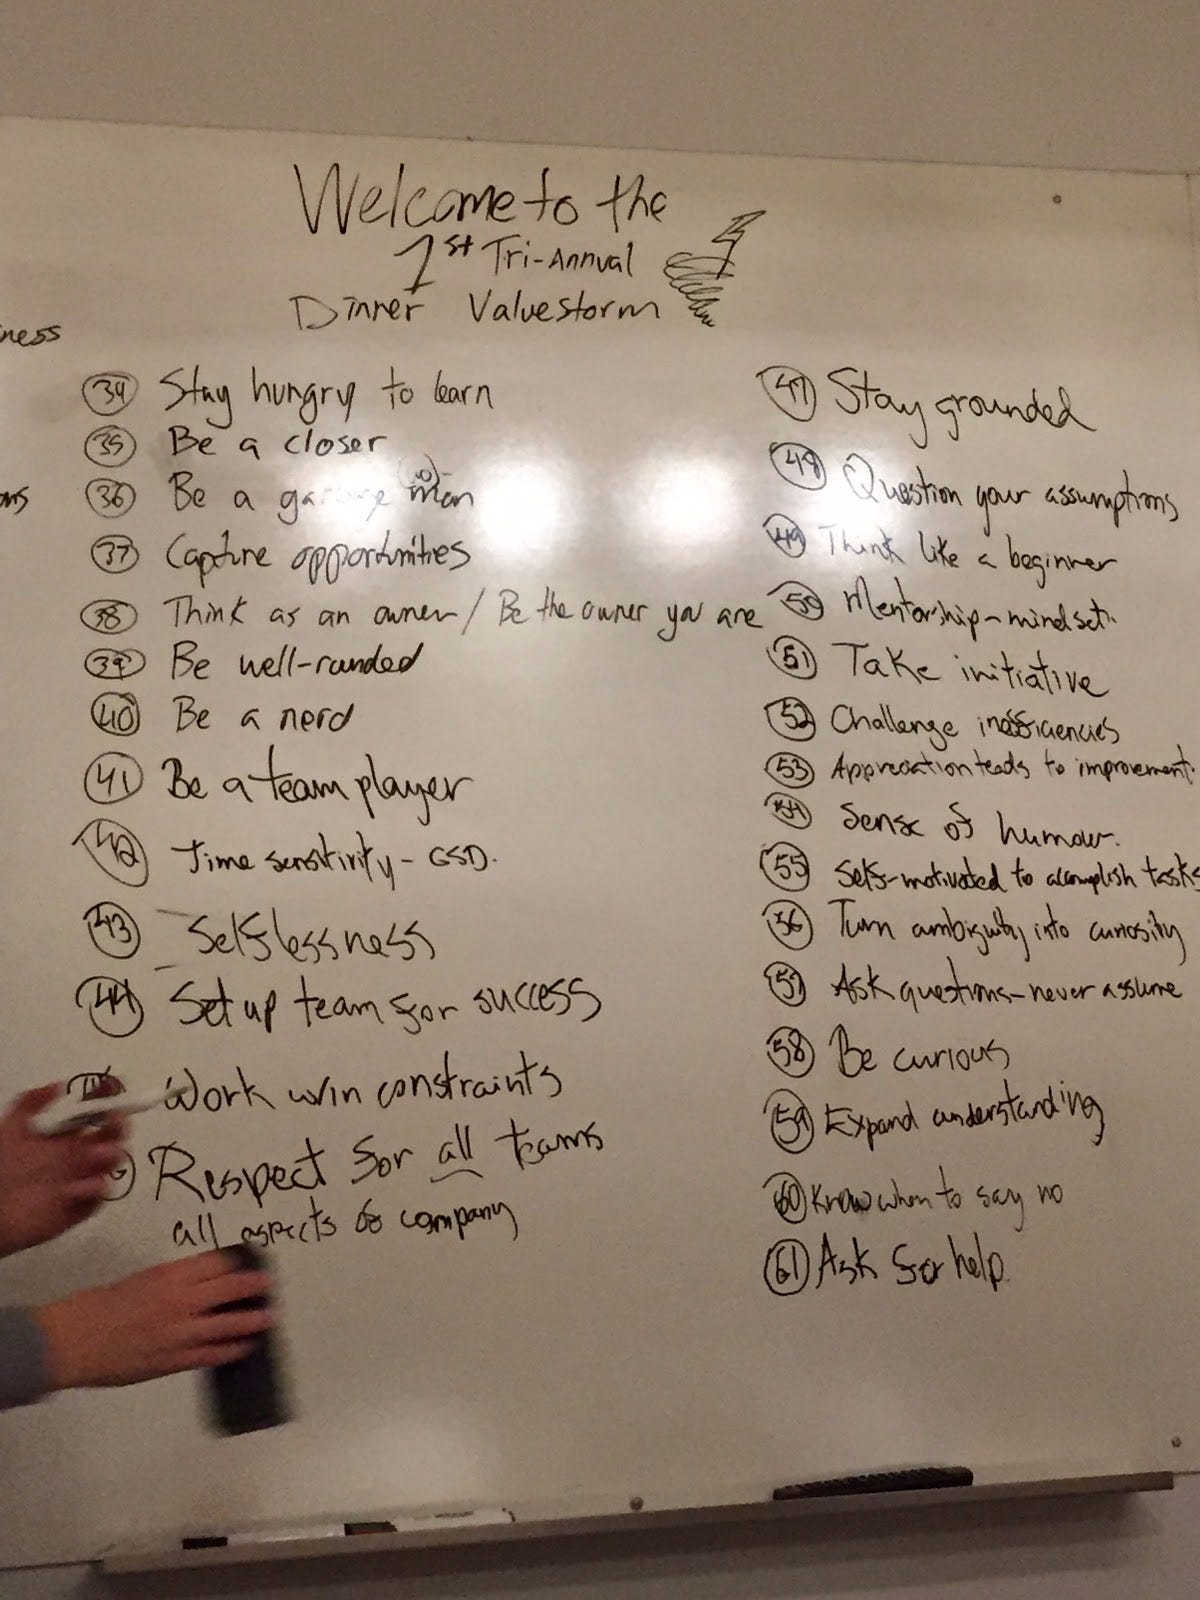 Welcome to the
1st Tri-Annual
Dinner Valuestorm
ness
34 Stay hungry to learn
35 Be a closer
36 Be a garbage man
37 Capture opportunities
38 Think as an owner / Be the owner you are
39 Be well-rounded
40 Be a nerd
41 Be a team player
42 Time sensitivity - GSD.
43 Selflessness
44 Set up team for success
Work w/in constraints
Respect for all teams
all aspects of company
47 Stay grounded
48 Question your assumptions
49 Think like a beginner
50 Mentorship - mindset.
51 Take initiative
52 Challenge inefficiencies
53 Appreciation leads to improvement.
54 Sense of humour.
55 Self-motivated to accomplish tasks
56 Turn ambiguity into curiosity
57 Ask questions - never assume
58 Be curious
59 Expand understanding
60 Know when to say no
61 Ask for help